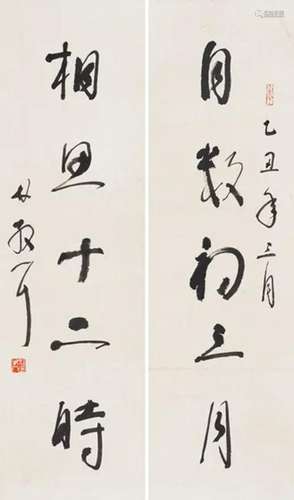 乙丑年三月
自数初三月
相思十二時
林散耳